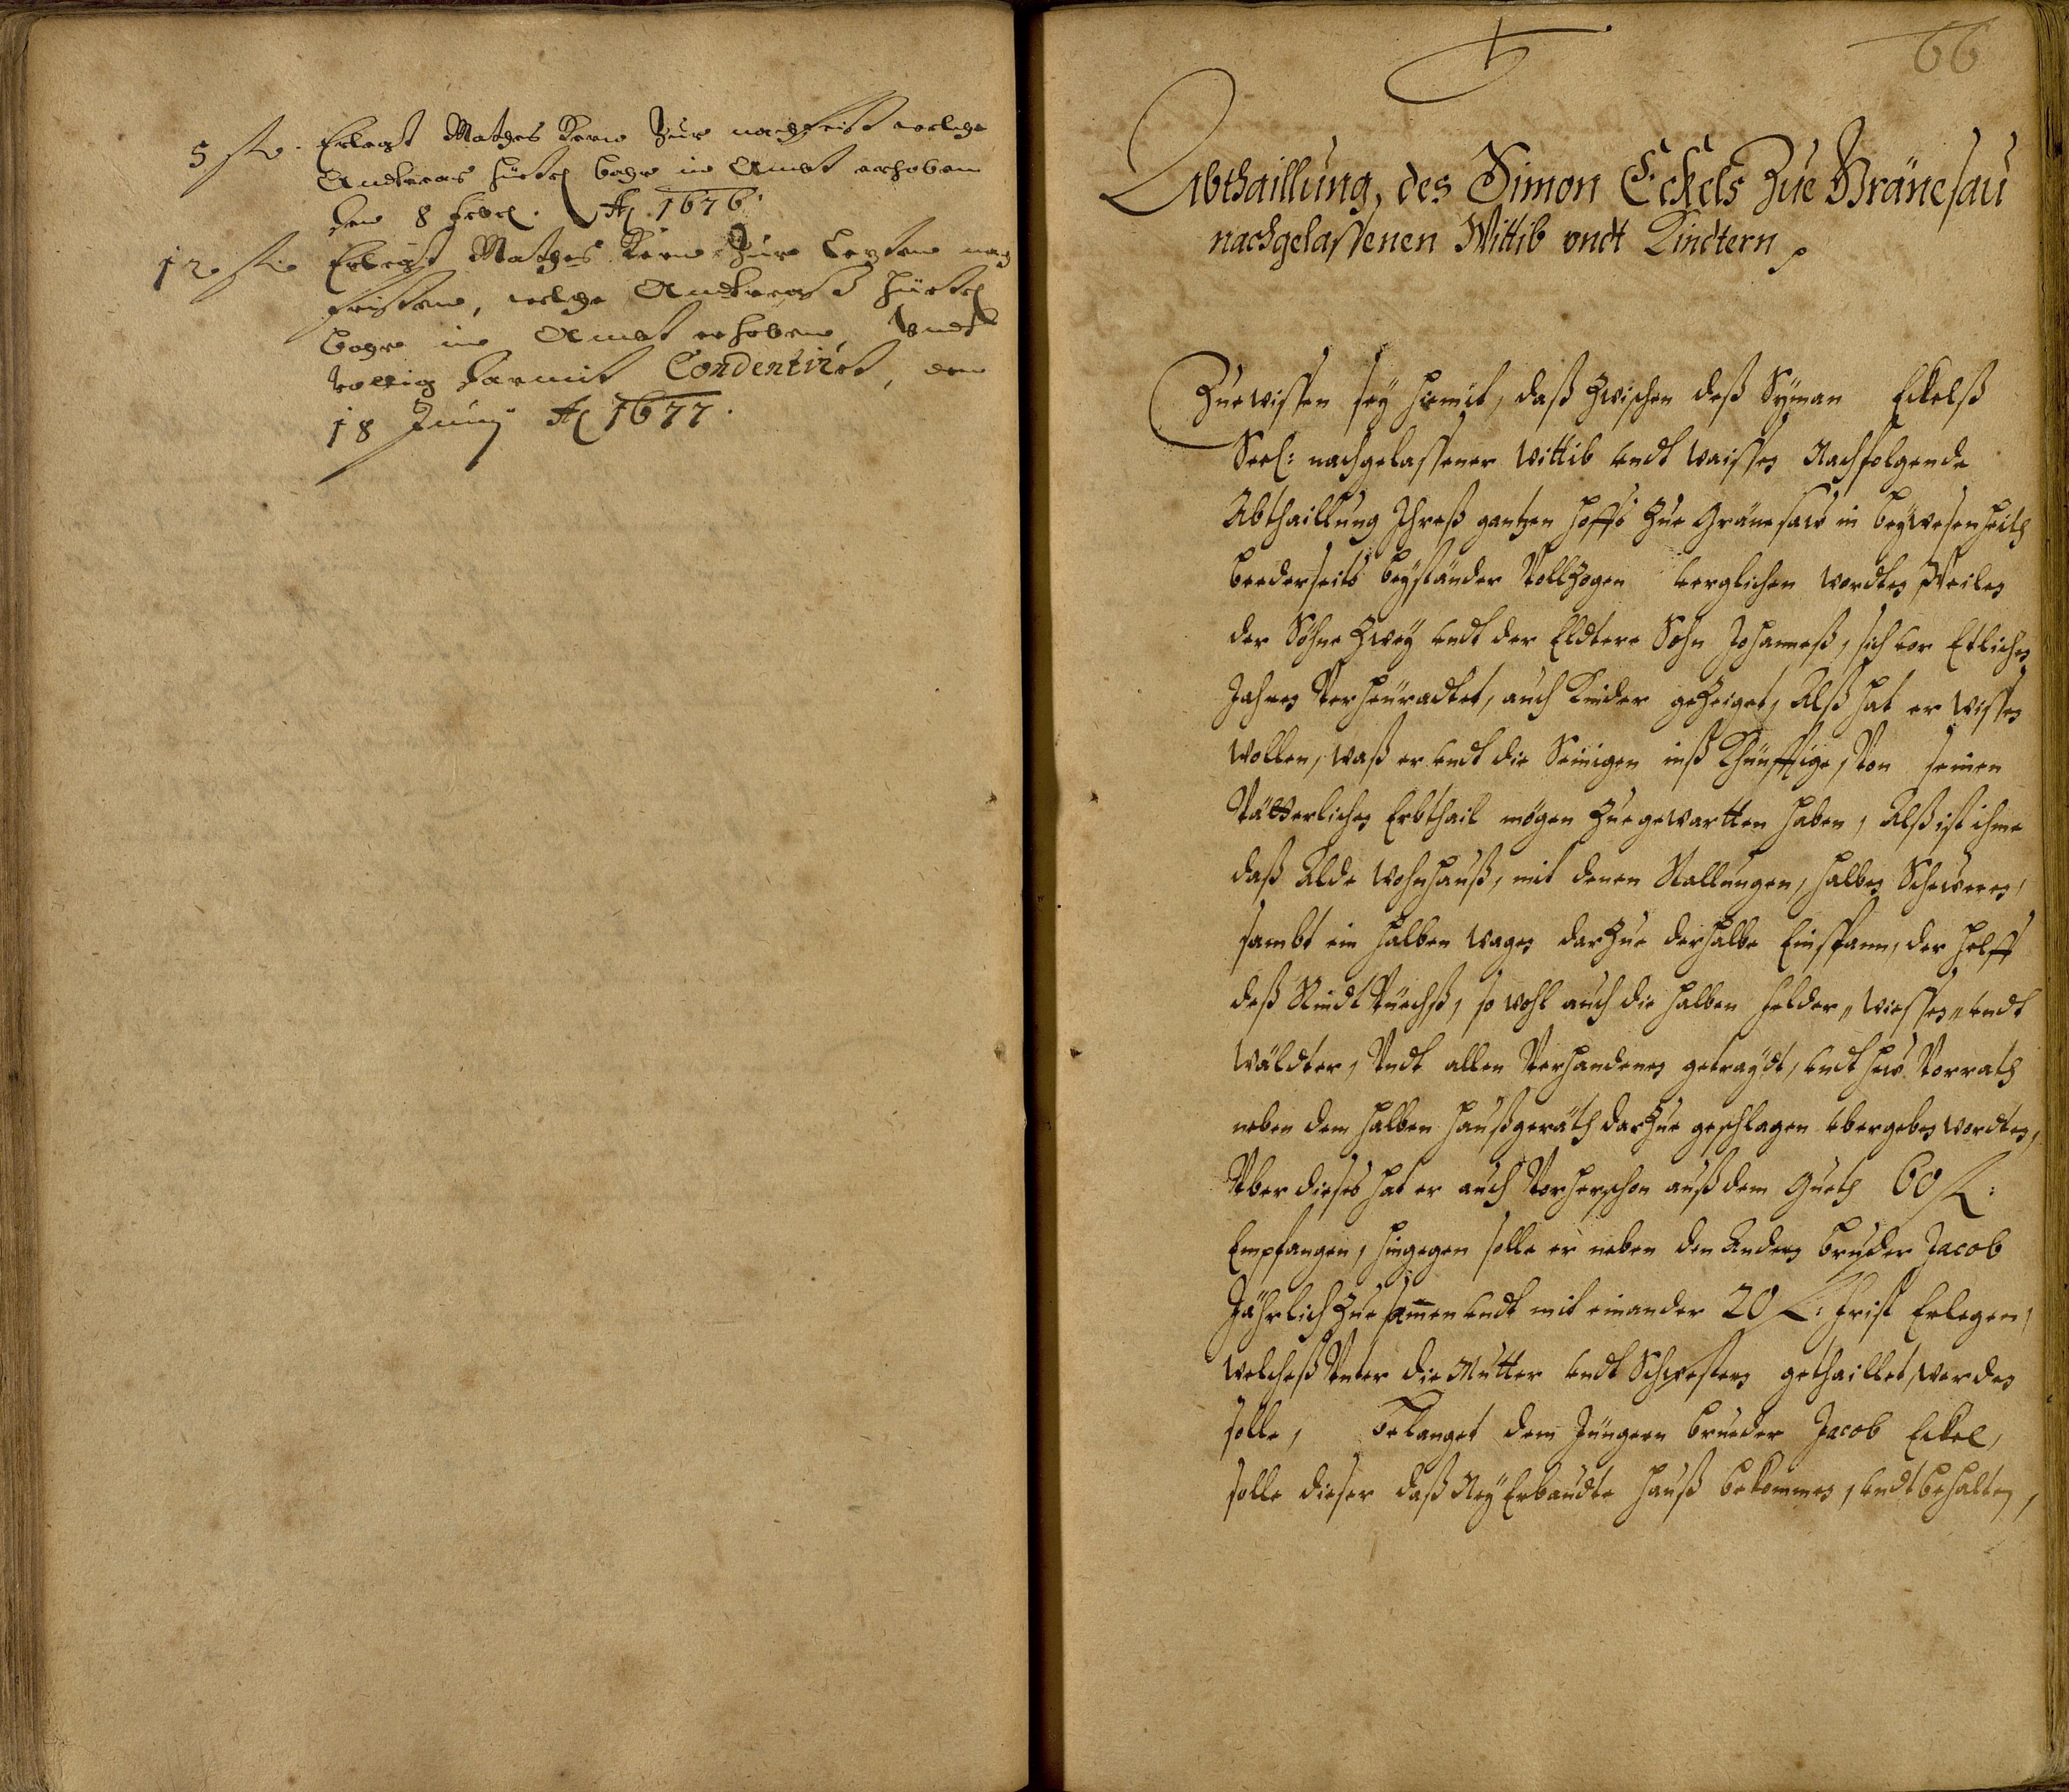 5 fl. Erlegt Mathes Kern Zur nachfrist welche
Andreas Hürtel bahr in Ambt erhoben
den 8 Febr. Ao 1676.
12 fl. Erlegt Mathes Kern Zur Lezten nach
fristen, welche Andreas Hürtel
bahr in Ambt erhoben, vndt
vollig darmit Condentirt, den
18 Juny Ao 1677.
66
Abthaillung, des Simon Eckels Zue Gränesau
nachgelassenen Wittib vndt Kindtern
Zue wissen sey hiemit, daß Zwischen deß Syman Eckelß
Seel: nachgelassener Wittib vndt Waissen Nachfolgende
Abthaillung Ihreß gantzen Hoffs Zue Gränesaw in beyWesenheith
beederseits beyständer VollZogen verglichen Wordten, Weilen
der Söhne Zwey vndt der Eldtere Sohn Johanneß, sich vor Etlichen
Jahren Verheuradtet, auch Kinder geZeiget, Alß hat er Wissen
Wollen, Waß er vndt die Seinigen inß Khünfftige, Von seinen
Vätterlichen Erbthail mögen Zue gewartten haben, Alß ist ihme
daß Alde Wohnhauß, mit denen Stallungen, halben Scheweren,
sambt ein halben Wagen darZue der halbe Einspann, der helfft
deß RindtViechß, so Wohl auch die halben Felder, Wiessen, vndt
Wäldter, Vndt allen Verhandenen getraydt, vndt Hew Vorrath
neben dem halben Haußgeräth darZue geschlagen vbergeben Wordten,
Vber dieses hat er auch Vorherschon auß dem Gueth 60 fl:
Empfangen, hingegen solle er neben den Andern bruder Jacob
Jährlich Zue samen vndt mit einander 20 fl: Frist Erlegen,
Welcheß Vnter die Mutter vndt Schwestern gethaillet Werden
solle, Belanget dem Jüngern Brueder Jacob Eckel,
solle dieser daß Ney Erbaudte Hauß bekommen, vndt behalten,